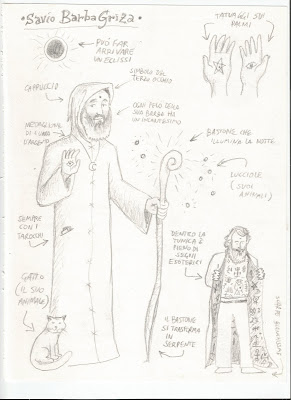 • Savio BarbaGriza •
PUÓ FAR
ARRIVARE
UN ECLISSI
TATUAGGI SUI
PALMI
SIMBOLO DEL
TERZO OCCHIO
CAPPUCCIO
OGNI PELO DELLA
SUA BARBA HA
UN INCANTESIMO
MEDAGLIONE
DI LUNA
D'ARGENTO
BASTONE CHE
ILLUMINA LA NOTTE
LUCCIOLE
(SUOI
ANIMALI)
SEMPRE
CON I
TAROCCHI
DENTRO LA
TUNICA È
PIENO DI
SEGNI
ESOTERICI
GATTO
(IL SUO
ANIMALE)
IL BASTONE
SI TRASFORMA
IN
SERPENTE